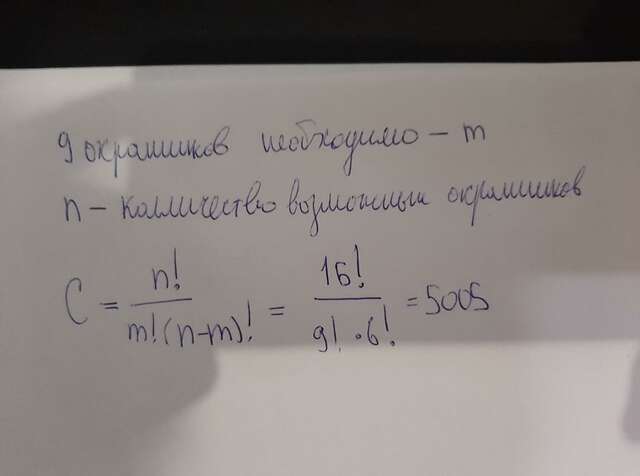 9 охранников необходимо – m
n – колличество возможных охранников
C = n! / m!(n-m)! = 15! / 9! · 6! = 5005